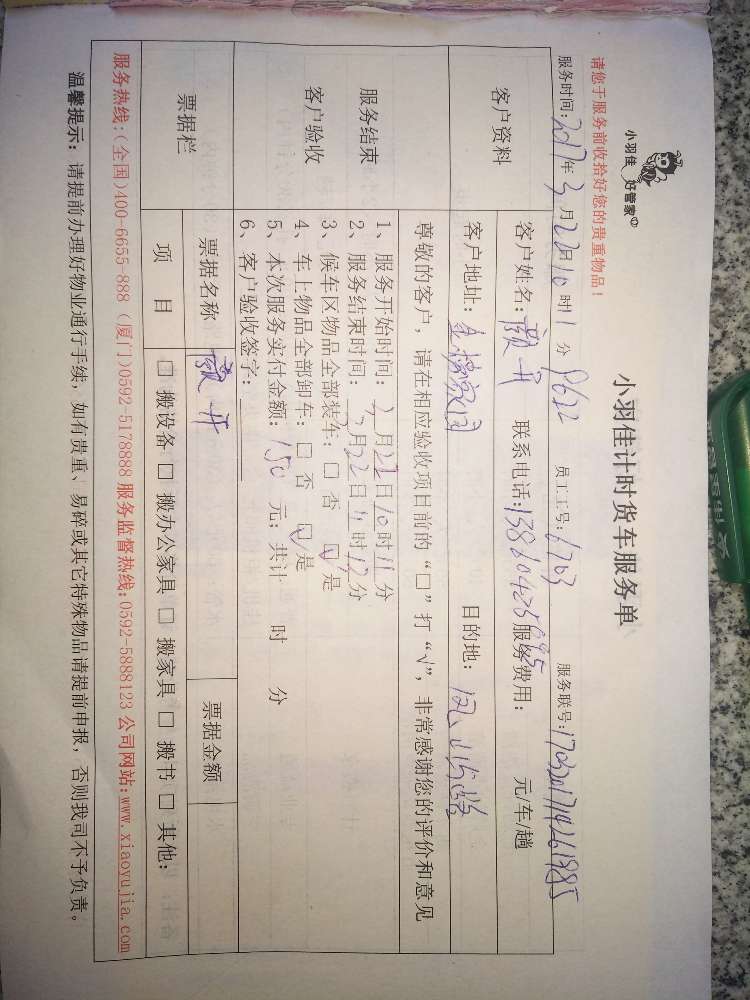 小羽佳 好管家
小羽佳计时货车服务单
请您于服务前收拾好您的贵重物品！
服务时间：2017年3月22日10时11分 9622 员工工号：6703 服务联号：17032017194261985
客户资料
客户姓名： 联系电话： 服务费用： 元/车/趟
客户地址： 目的地：
尊敬的客户，请在相应验收项目前的“□”打“√”，非常感谢您的评价和意见
服务结束
客户验收
1、服务开始时间：3月22日10时11分
2、服务结束时间：3月22日11时12分
3、候车区物品全部装车：□ 否 ☑ 是
4、车上物品全部卸车：□ 否 ☑ 是
5、本次服务实付金额：150 元；共计 时 分
6、客户验收签字：
票据栏
票据名称 票据金额
项 目 □ 搬设备 □ 搬办公家具 □ 搬家具 □ 搬书 □ 其他：
服务热线：(全国)400-6655-888 (厦门)0592-5178888 服务监督热线：0592-5888123 公司网站：www.xiaoyujia.com
温馨提示：请提前办理好物业通行手续，如有贵重、易碎或其它特殊物品请提前申报，否则我司不予负责。